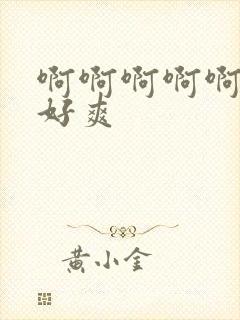 啊啊啊啊啊
好爽
黄小金